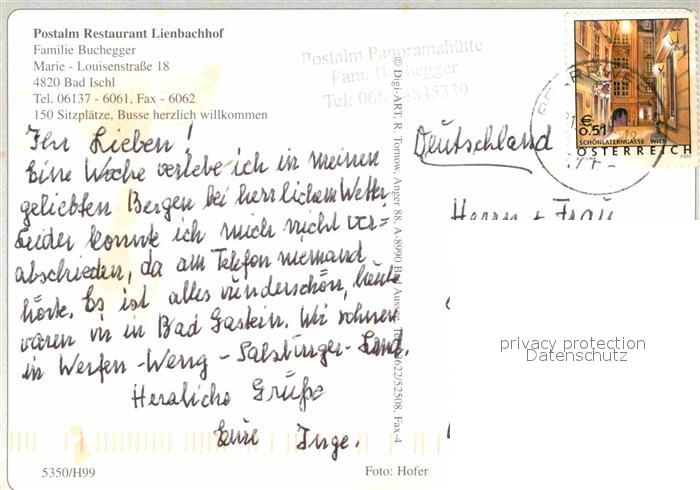 Postalm Restaurant Lienbachhof
Familie Buchegger
Marie - Louisenstraße 18
4820 Bad Ischl
Tel. 06137 - 6061, Fax - 6062
150 Sitzplätze, Busse herzlich willkommen
Postalm Panoramahütte
Fam. Buchegger
Tel: 845339
Ihr Lieben!
Eine Woche verlebe ich in meinen
geliebten Bergen bei herrlichem Wetter
Leider konnte ich mich nicht ver=
abschieden, da am Telefon niemand
hörte. Es ist alles wunderschön, heute
waren wir in Bad Gastein. Wir wohnen
in Werfen-Weng - Salzburger-Land.
Herzliche Grüße
Eure Inge.
© Digi-ART, R. Tornow, Anger 88, A-8990 Bad Aussee, Tel. 03622/52508, Fax-4
Deutschland
Herrn + Frau
€
0.51
SCHÖNLATERNGASSE WIEN
ÖSTERREICH
privacy protection
Datenschutz
5350/H99
Foto: Hofer